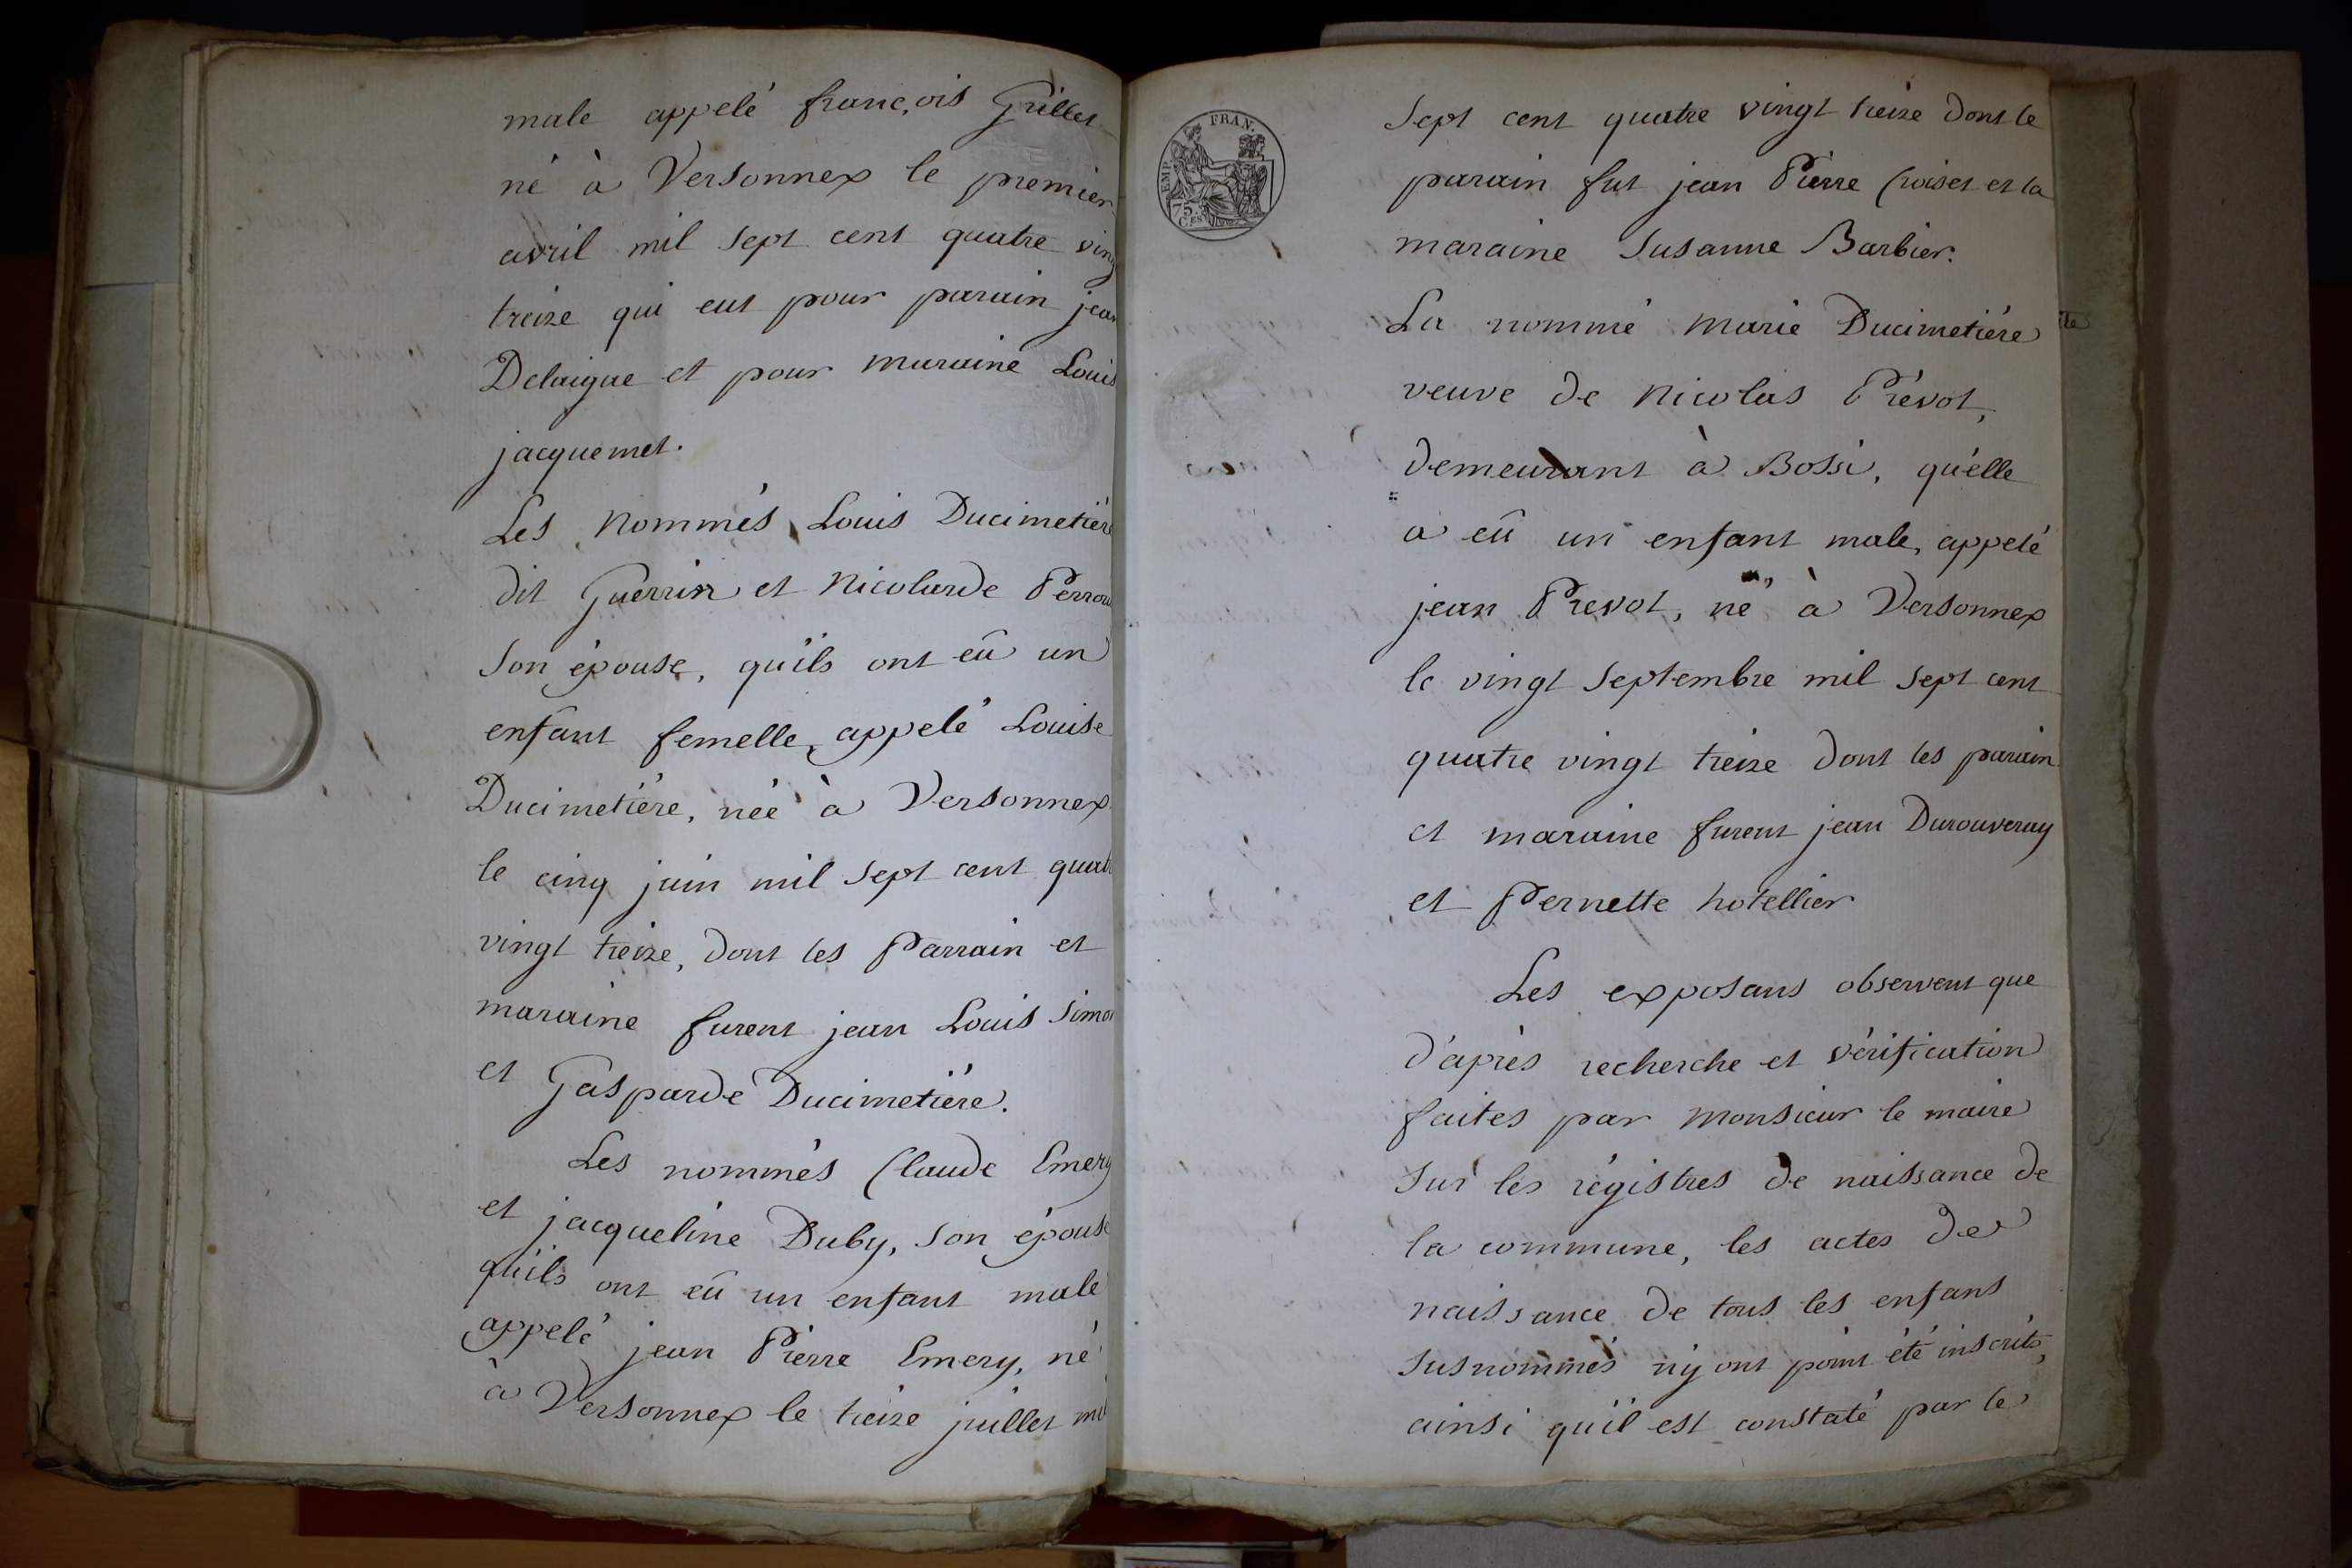 male appelé françois Grillet
né à Versonnex le premier
avril mil sept cent quatre ving
treize qui eut pour parain jean
Delaigue et pour maraine Louis
jacquemet.
Les nommés Louis Ducimetière
dit Guerrin et Nicolarde Perrou
son épouse, qu'ils ont eû un
enfant femelle, appelé Louise
Ducimetière, née à Versonnex
le cinq juin mil sept cent quat
vingt treize, dont les Parrain et
maraine furent jean Louis Simon
et Gasparde Ducimetière.
Les nommés Claude Emery
et jacqueline Duby, son épouse
qu'ils ont eû un enfant male
appelé jean Pierre Emery, né
à Versonnex le treize juillet mil
FRAN.
EMP.
75
C.ES
sept cent quatre vingt treize dont le
parain fut jean Pierre Croiset et la
maraine Susanne Barbier.
La nommé marie Ducimetière
veuve de Nicolas Prévot,
demeurant à Bossi, qu'elle
a eû un enfant male, appelé
jean Prevot, né à Versonnex
le vingt Septembre mil sept cent
quatre vingt treize dont les parain
et maraine furent jean Durouveray
et Pernette hotellier
Les exposans observent que
d'après recherche et vérification
faites par Monsieur le maire
sur les régistres de naissance de
la commune, les actes de
naissance de tous les enfans
susnommés n'y ont point été inscrits,
ainsi qu'il est constaté par le